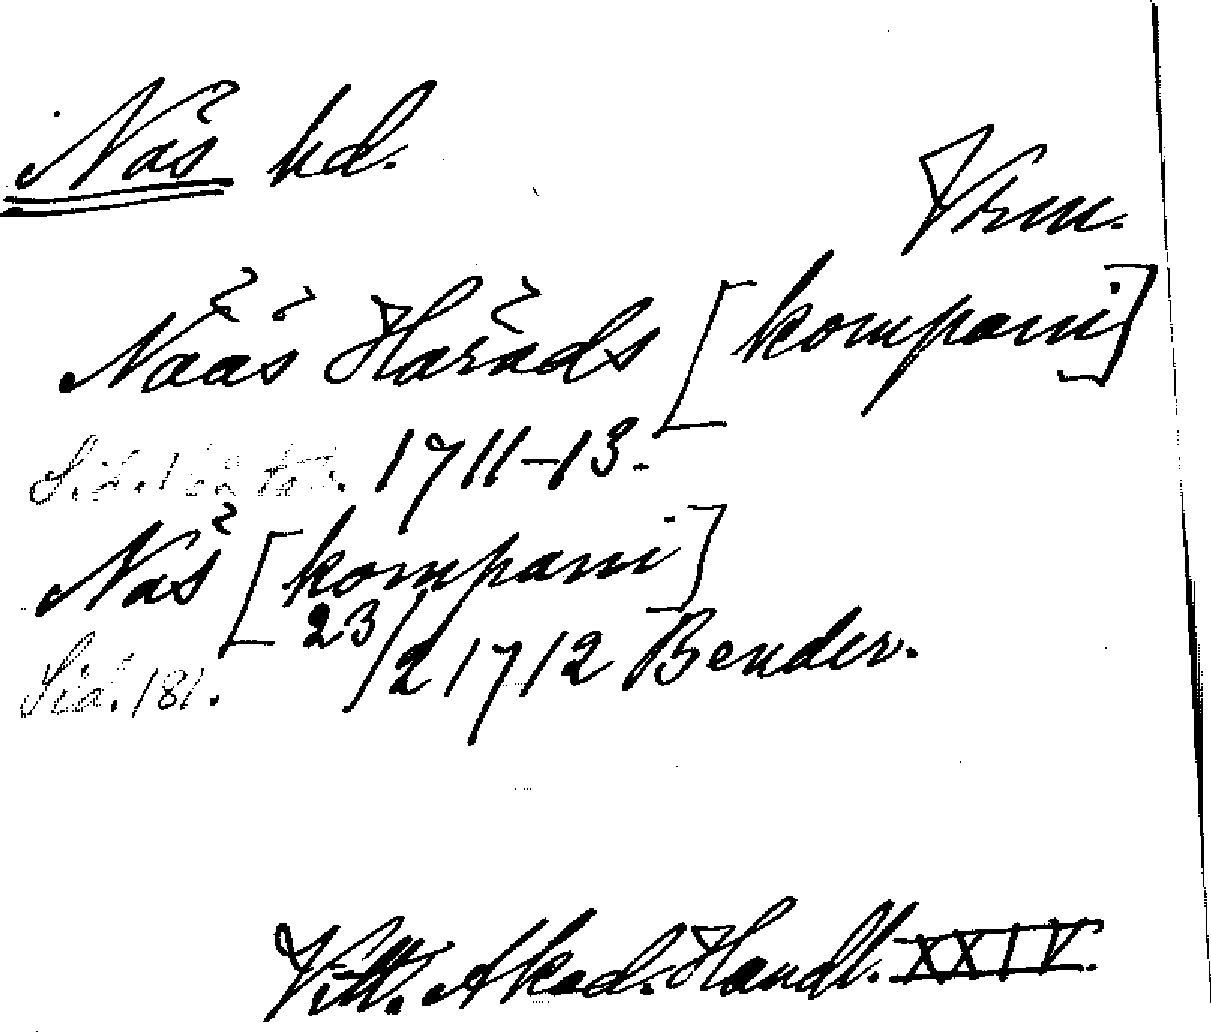 Näs hd.
Vrm.
Nääs Härads [kompani]
Sid. 162 1711-13.
Näs [kompani]
Sid. 181. 23/2 1712 Bender.
Vitt. Akad. Handl. XXIV.